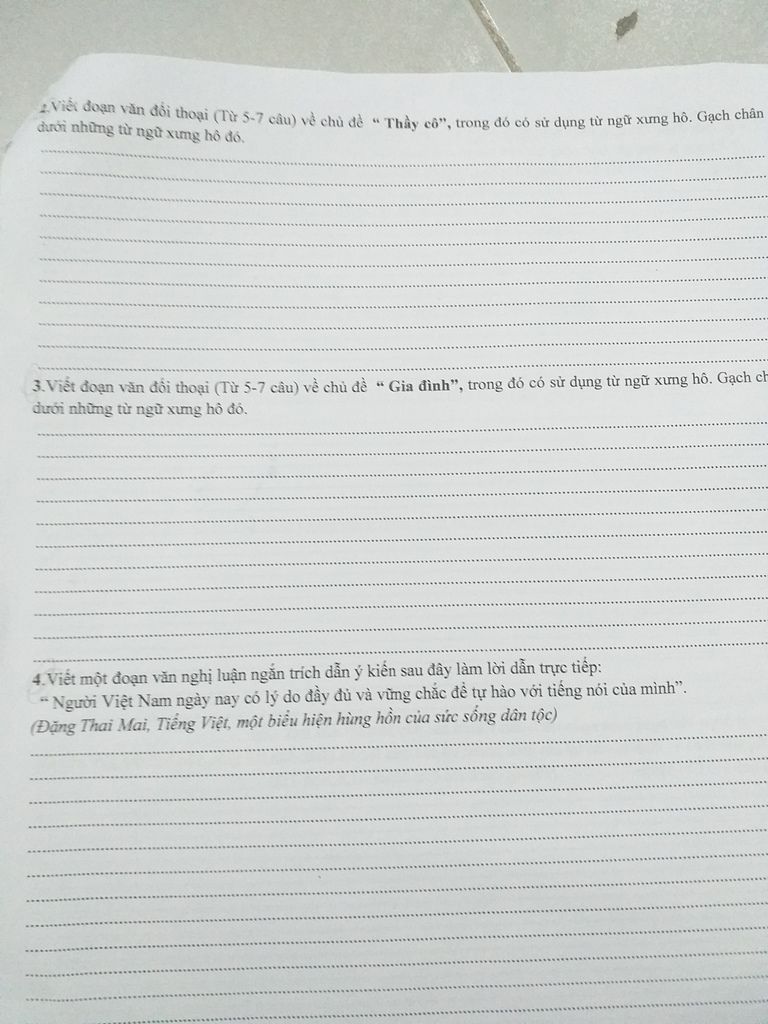 2.Viết đoạn văn đối thoại (Từ 5-7 câu) về chủ đề “ Thầy cô”, trong đó có sử dụng từ ngữ xưng hô. Gạch chân
dưới những từ ngữ xưng hô đó.
3.Viết đoạn văn đối thoại (Từ 5-7 câu) về chủ đề “ Gia đình”, trong đó có sử dụng từ ngữ xưng hô. Gạch ch
dưới những từ ngữ xưng hô đó.
4.Viết một đoạn văn nghị luận ngắn trích dẫn ý kiến sau đây làm lời dẫn trực tiếp:
“ Người Việt Nam ngày nay có lý do đầy đủ và vững chắc để tự hào với tiếng nói của mình”.
(Đặng Thai Mai, Tiếng Việt, một biểu hiện hùng hồn của sức sống dân tộc)